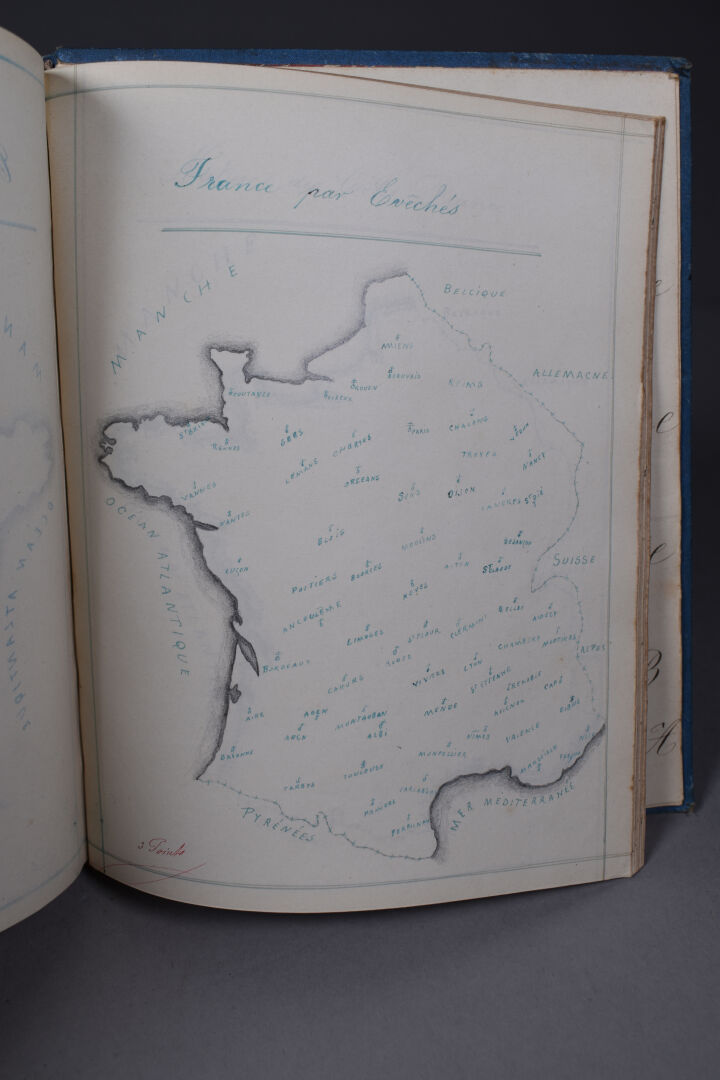 France par Evêchés
MANCHE
BELGIQUE
ALLEMAGNE
AMIENS
BEAUVAIS
ROUEN
REIMS
COUTANCE
PARIS
CHALONS
ST BRIEUC
RENNES
SEES
CHARTRES
TROYES
NANCY
LEMANS
ORLEANS
SENS
DIJON
LANGRES
ST DIÉ
VANNES
NANTES
BLOIS
MOULINS
BESANÇON
LUÇON
POITIERS
BOURGES
AUTUN
ST CLAUDE
SUISSE
OCÉAN ATLANTIQUE
ANGOULÊME
BELLEY
LIMOGES
ST FLOUR
CLERMONT
CHAMBÉRY
ALPES
BORDEAUX
RODEZ
LYON
CAHORS
VIVIERS
ST ETIENNE
GRENOBLE
GAP
AIRE
AGEN
MONTAUBAN
MENDE
AVIGNON
DIGNE
AUCH
ALBI
BAYONNE
MONTPELLIER
NÎMES
VALENCE
TARBES
TOULOUSE
MARSEILLE
PAMIERS
PERPIGNAN
PYRÉNÉES
MER MEDITERRANÉE
3 Points